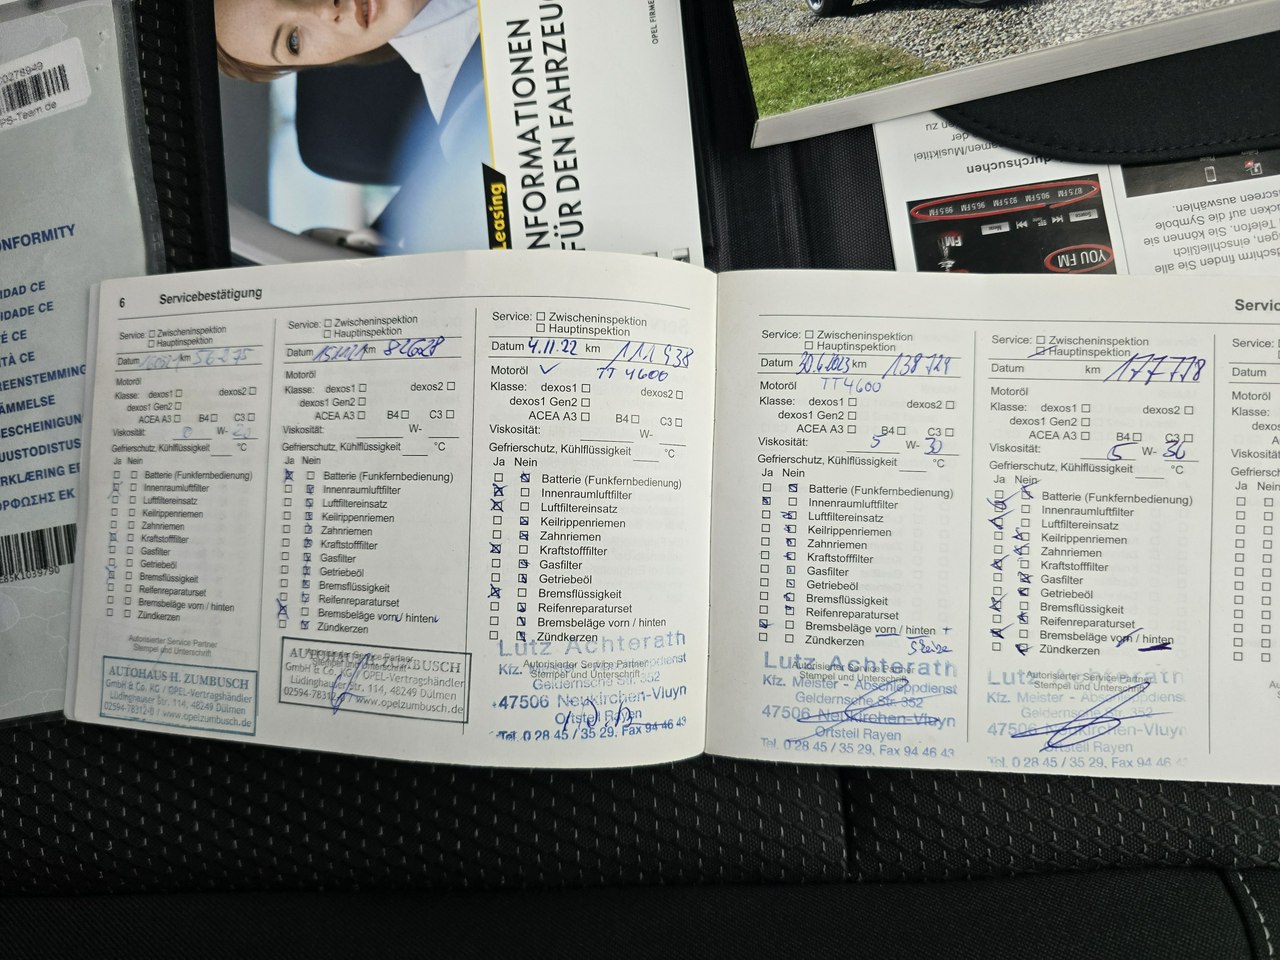 C0278949
PS-Team.de
ONFORMITY
IDAD CE
IDADE CE
TÉ CE
ITÀ CE
REENSTEMMING
ÄMMELSE
ESCHEINIGUN
UUSTODISTUS
RKLÆRING EF
ΟΡΦΩΣΗΣ ΕΚ
E85K1039790
Leasing
NFORMATIONEN
FÜR DEN FAHRZEU
OPEL FIRME
durchsuchen
YOU FM
FM
87.5 FM 90.5 FM 93.5 FM 96.5 FM 99.5 FM
dschirm finden Sie alle
gen, einschließlich
Telefon. Sie können sie
ücken auf die Symbole
screen auswählen.
6 Servicebestätigung
Service: Zwischeninspektion
Hauptinspektion
Datum km 56 275
Motoröl
Klasse: dexos1 dexos2
dexos1 Gen2
ACEA A3 B4 C3
Viskosität: 0 W- 20
Gefrierschutz, Kühlflüssigkeit °C
Ja Nein
Batterie (Funkfernbedienung)
Innenraumluftfilter
Luftfiltereinsatz
Keilrippenriemen
Zahnriemen
Kraftstofffilter
Gasfilter
Getriebeöl
Bremsflüssigkeit
Reifenreparaturset
Bremsbeläge vorn / hinten
Zündkerzen
Autorisierter Service Partner
Stempel und Unterschrift
AUTOHAUS H. ZUMBUSCH
GmbH & Co. KG / OPEL-Vertragshändler
Lüdinghauser Str. 114, 48249 Dülmen
02594-78312-0 / www.opelzumbusch.de
Service: Zwischeninspektion
Hauptinspektion
Datum km 82628
Motoröl
Klasse: dexos1 dexos2
dexos1 Gen2
ACEA A3 B4 C3
Viskosität: W-
Gefrierschutz, Kühlflüssigkeit °C
Ja Nein
Batterie (Funkfernbedienung)
Innenraumluftfilter
Luftfiltereinsatz
Keilrippenriemen
Zahnriemen
Kraftstofffilter
Gasfilter
Getriebeöl
Bremsflüssigkeit
Reifenreparaturset
Bremsbeläge vorn / hinten
Zündkerzen
Autorisierter Service Partner
Stempel und Unterschrift
AUTOHAUS H. ZUMBUSCH
GmbH & Co. KG / OPEL-Vertragshändler
Lüdinghauser Str. 114, 48249 Dülmen
02594-78312 www.opelzumbusch.de
Service: Zwischeninspektion
Hauptinspektion
Datum 4.11.22 km 111 938
Motoröl TT 4600
Klasse: dexos1 dexos2
dexos1 Gen2
ACEA A3 B4 C3
Viskosität: W-
Gefrierschutz, Kühlflüssigkeit °C
Ja Nein
Batterie (Funkfernbedienung)
Innenraumluftfilter
Luftfiltereinsatz
Keilrippenriemen
Zahnriemen
Kraftstofffilter
Gasfilter
Getriebeöl
Bremsflüssigkeit
Reifenreparaturset
Bremsbeläge vorn / hinten
Zündkerzen
Autorisierter Service Partner
Stempel und Unterschrift
Lutz Achterath
Kfz.
Geldernsche Str. 352
47506 Neukirchen-Vluyn
Ortsteil Rayen
Tel. 0 28 45 / 35 29, Fax 94 46 43
Servic
Service: Zwischeninspektion
Hauptinspektion
Datum 30.6.2023 km 138 729
Motoröl TT4600
Klasse: dexos1 dexos2
dexos1 Gen2
ACEA A3 B4 C3
Viskosität: 5 W- 30
Gefrierschutz, Kühlflüssigkeit °C
Ja Nein
Batterie (Funkfernbedienung)
Innenraumluftfilter
Luftfiltereinsatz
Keilrippenriemen
Zahnriemen
Kraftstofffilter
Gasfilter
Getriebeöl
Bremsflüssigkeit
Reifenreparaturset
Bremsbeläge vorn / hinten +
Zündkerzen
Autorisierter Service Partner
Stempel und Unterschrift
Lutz Achterath
Kfz. Meister - Abschleppdienst
Geldernsche Str. 352
47506 Neukirchen-Vluyn
Ortsteil Rayen
Tel. 0 28 45 / 35 29, Fax 94 46 43
Service: Zwischeninspektion
Hauptinspektion
Datum km 177 778
Motoröl
Klasse: dexos1 dexos2
dexos1 Gen2
ACEA A3 B4 C3
Viskosität: 5 W- 30
Gefrierschutz, Kühlflüssigkeit °C
Ja Nein
Batterie (Funkfernbedienung)
Innenraumluftfilter
Luftfiltereinsatz
Keilrippenriemen
Zahnriemen
Kraftstofffilter
Gasfilter
Getriebeöl
Bremsflüssigkeit
Reifenreparaturset
Bremsbeläge vorn / hinten
Zündkerzen
Autorisierter Service Partner
Stempel und Unterschrift
Lutz Achterath
Kfz. Meister - Abschleppdienst
Geldernsche Str. 352
47506 Neukirchen-Vluyn
Ortsteil Rayen
Tel. 0 28 45 / 35 29, Fax 94 46 4
Service:
Datum
Motoröl
Klasse:
Viskosität:
Gefriersch
Ja Nein